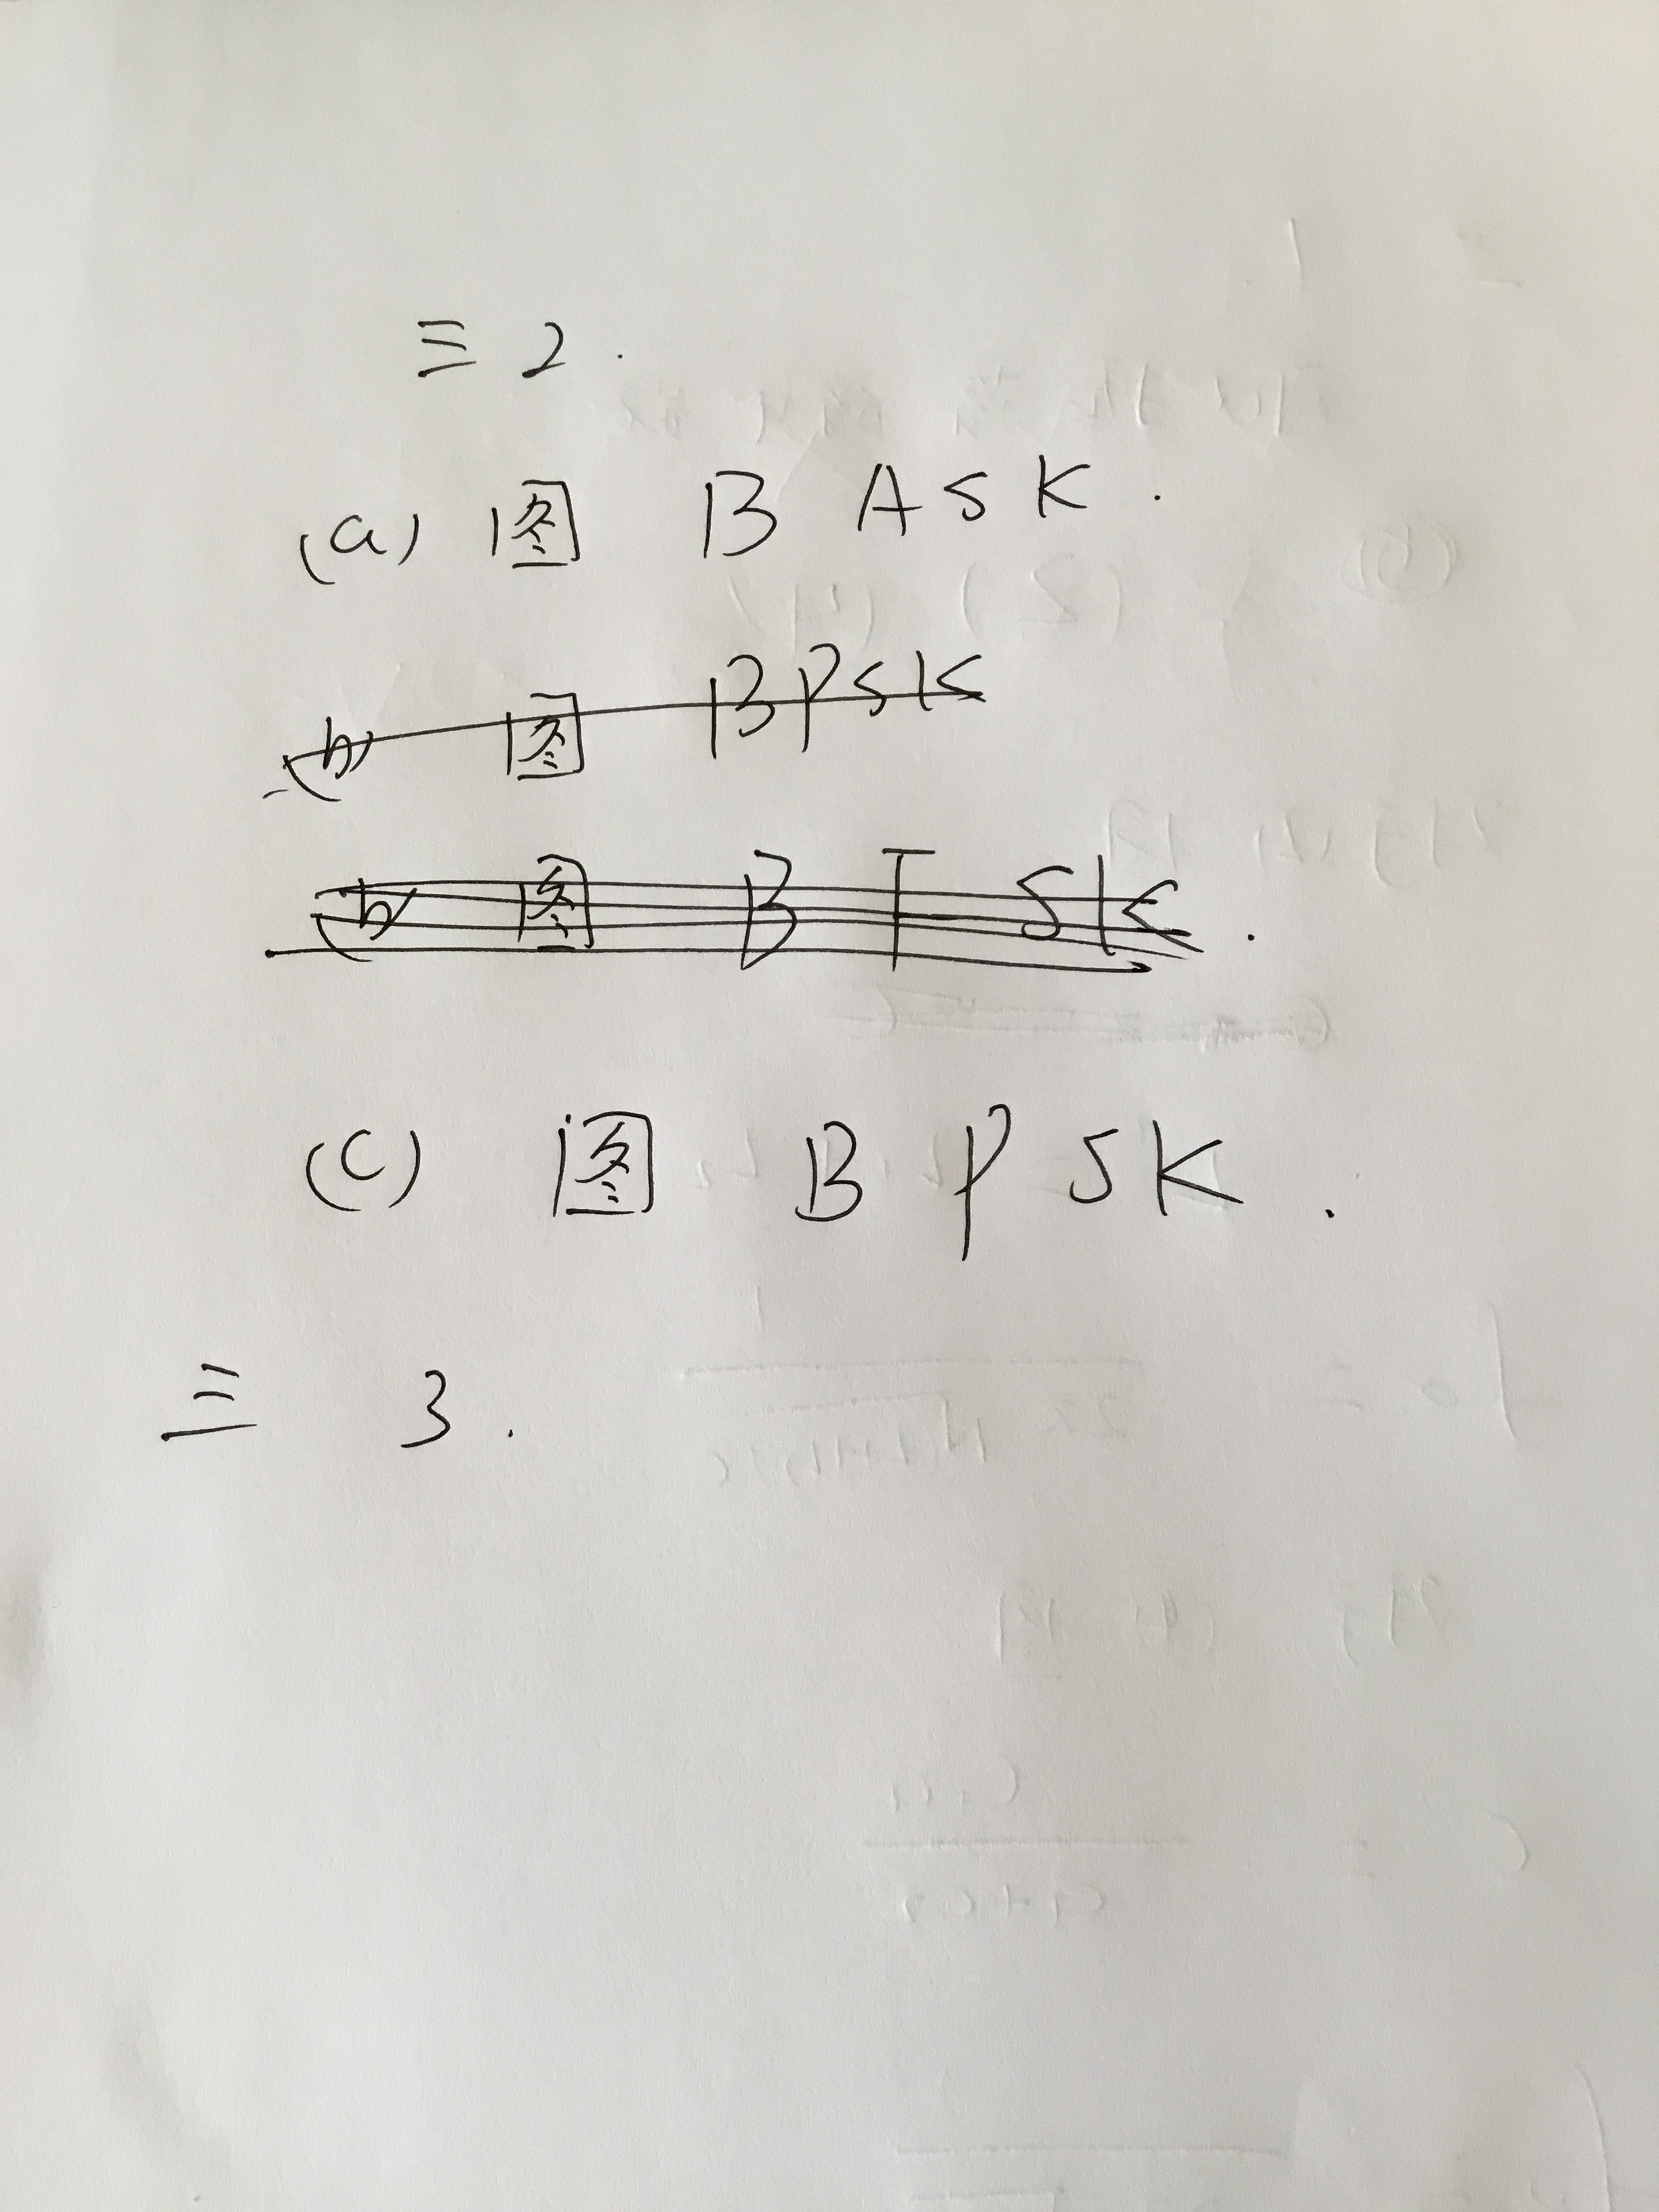 三 2.
(a) 图 B A S K.
(b) 图 BPSK
(b) 图 B F SK.
(c) 图 B P S K.
三 3.